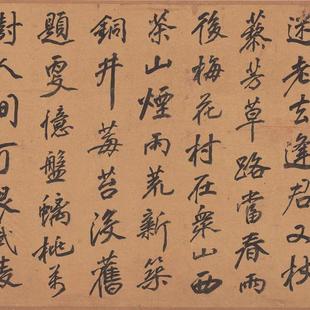 迷老去逢君又杖
藜芳草路當春雨
後梅花村在眾山西
茶山煙雨荒新築
銅井莓苔沒舊
題更憶盤螭桃萬
樹人間何限武陵